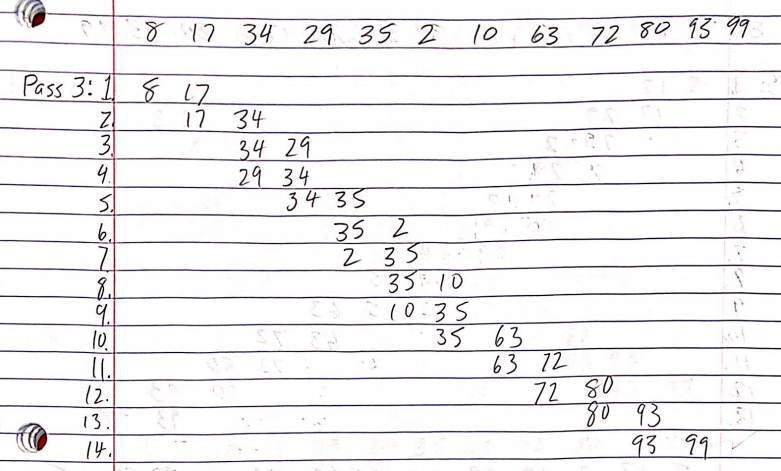 8 17 34 29 35 2 10 63 72 80 93 99
Pass 3: 1. 8 17
2. 17 34
3. 34 29
4. 29 34
5. 34 35
6. 35 2
7. 2 35
8. 35 10
9. 10 35
10. 35 63
11. 63 72
12. 72 80
13. 80 93
14. 93 99